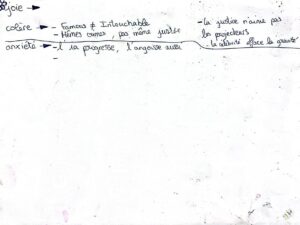 joie →
colère → - Famous ≠ Intouchable
- Mêmes crimes, pas même justice
- la justice n'aime pas
les projecteurs
la célébrité efface la gravité
anxiété → - l' ia progresse, l'angoisse aussi
-